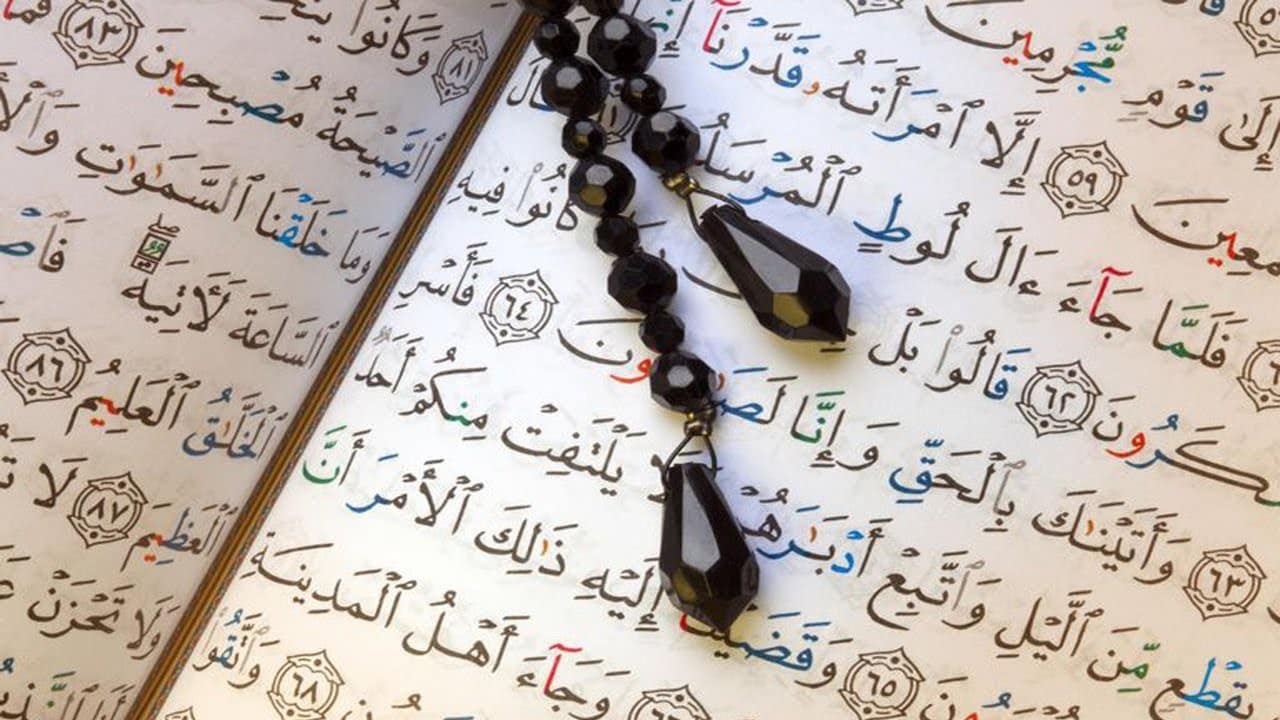 إِلَىٰ قَوْمٍ مُّجْرِمِينَ
مَعِينَ ٥٩ إِلَّا ٱمْرَأَتَهُۥ قَدَّرْنَآ إِنَّ
فَلَمَّا جَآءَ ءَالَ لُوطٍ ٱلْمُرْسَلُ قَالَ
كَرُونَ ٦٢ قَالُوا۟ بَلْ كَانُوا۟ فِيهِ
٦٣ وَأَتَيْنَٰكَ بِٱلْحَقِّ وَإِنَّا لَصَ ونَ ٦٤ فَأَسْرِ
بِقِطْعٍ مِّنَ ٱلَّيْلِ وَٱتَّبِعْ أَدْبَٰرَهُمْ يَلْتَفِتْ مِنكُمْ أَحَدٌ
٦٥ وَقَضَيْنَآ إِلَيْهِ ذَٰلِكَ ٱلْأَمْرَ أَنَّ
وَجَآءَ أَهْلُ ٱلْمَدِينَةِ
٦٨ وَٱتَّقُوا۟
٨١ وَكَانُوا۟
ٱلصَّيْحَةُ مُصْبِحِينَ ٨٣ فَمَا
وَمَا خَلَقْنَا ٱلسَّمَٰوَٰتِ وَٱلْأ
ٱلسَّاعَةَ لَءَاتِيَةٌ فَٱص
ٱلْخَلَّٰقُ ٱلْعَلِيمُ ٨٦
ٱلْعَظِيمَ ٨٧ لَا تَ
وَلَا تَحْزَنْ عَ